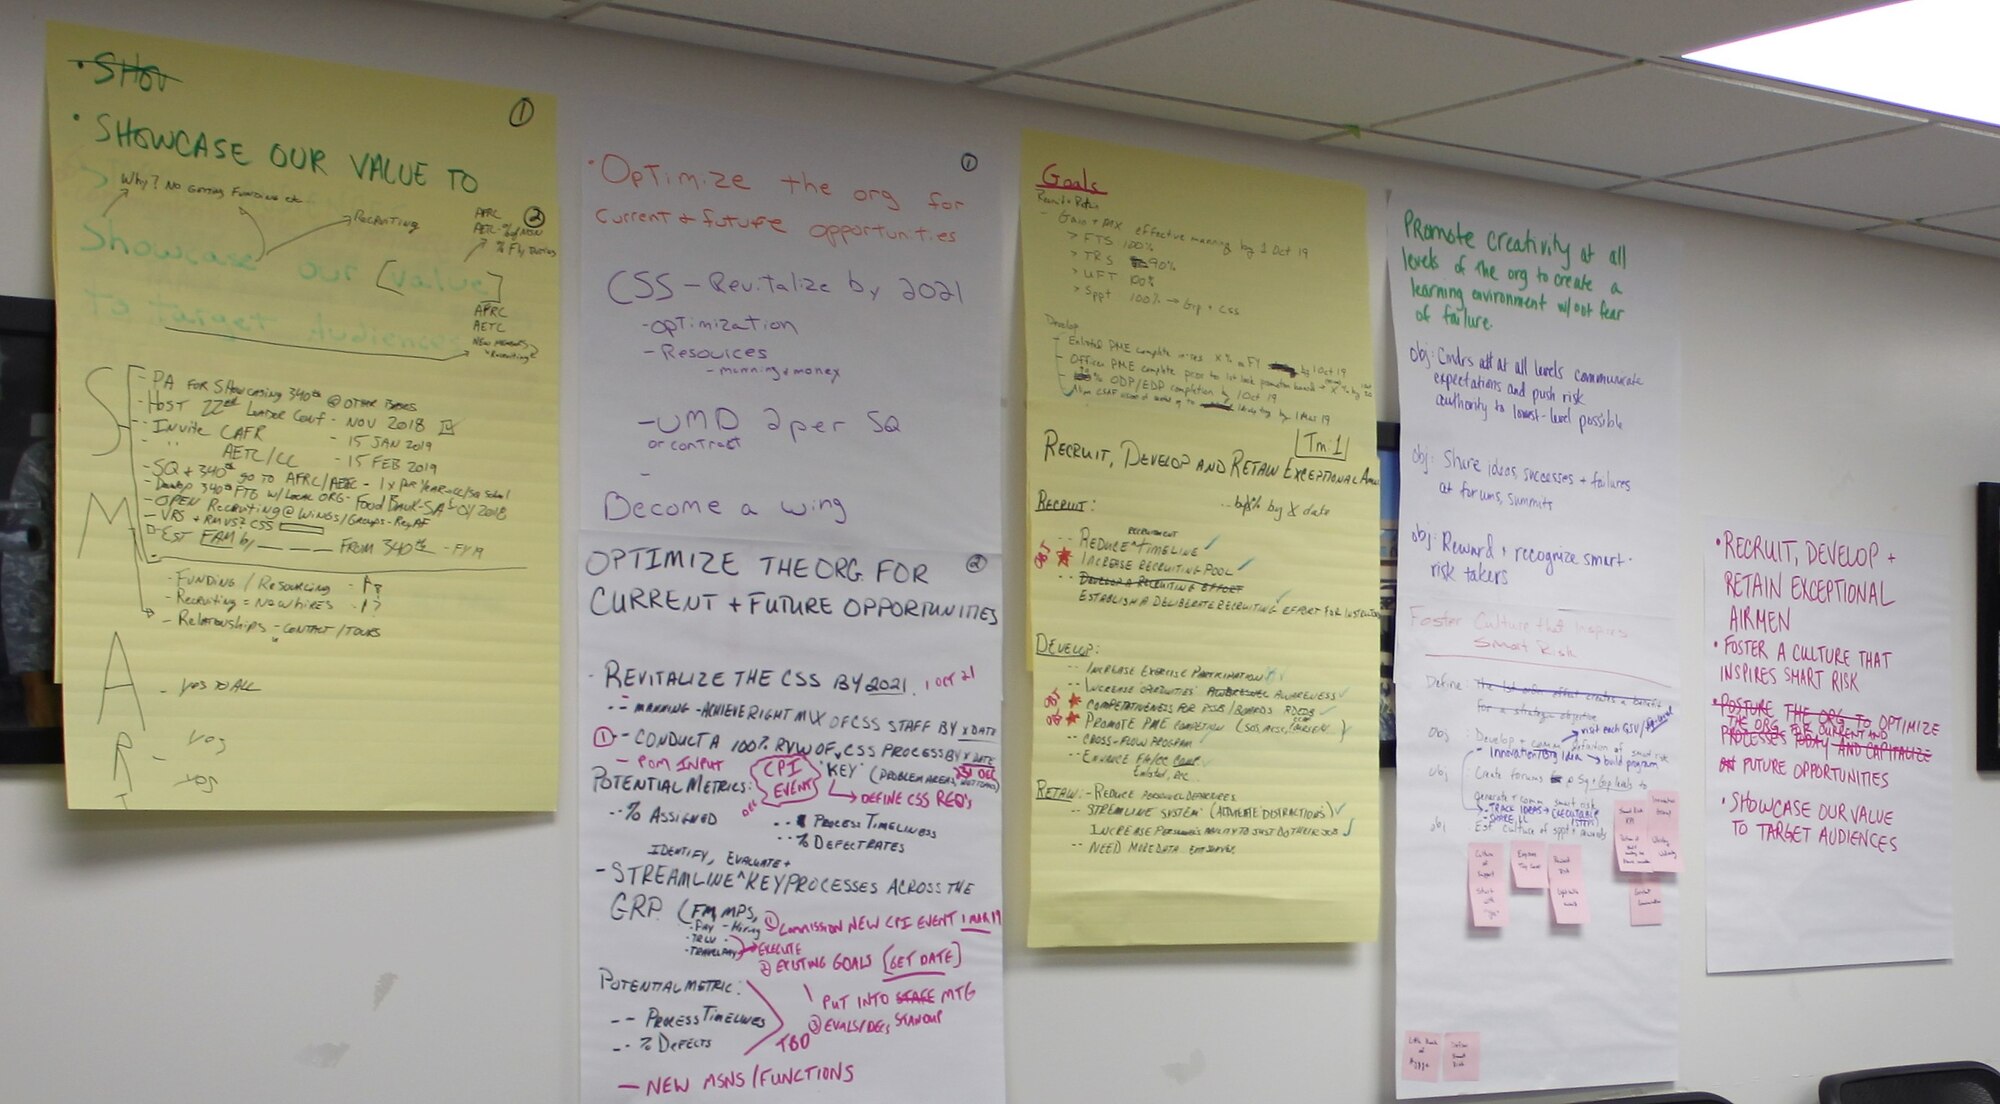 • SHOW
①
• SHOWCASE OUR VALUE TO
Why? NO GETTING FUNDING etc
RECRUITING
AFRC ②
AETC - % of MSN
% Fly Training
Showcase our [value]
to target audiences
AFRC
AETC
NEW MEMBERS
"Recruiting"
S
M
A
R
T
- PA FOR SHOWCASING 340th @ OTHER BASES
- HOST 22nd LEADER CONF - NOV 2018
- INVITE CAFR - 15 JAN 2019
" AETC/CC - 15 FEB 2019
- SQ + 340th GO TO AFRC/AETC - 1 x PER YEAR
- Develop 340th FTG w/ LOCAL ORG - FOOD BANK - SA
- OPEN RECRUITING @ WINGS/GROUPS - RegAF
- VRS + RMVS? CSS
EST FAM by _ _ _ _ FROM 340th - FY19
- FUNDING / RESOURCING - ↑?
- Recruiting = NEW HIRES - ↑?
- RELATIONSHIPS - CONTACT / TOURS
- yes TO ALL
yes
- yes
①
• Optimize the org for
current + future opportunities
CSS - Revitalize by 2021
- optimization
- Resources
- manning + money
- UMD 2 per SQ
or contract
-
Become a wing
②
OPTIMIZE THE ORG. FOR
CURRENT + FUTURE OPPORTUNITIES
- REVITALIZE THE CSS BY 2021. 1 OCT 21
-- MANNING - ACHIEVE RIGHT MIX OF CSS STAFF BY X DATE
① -- CONDUCT A 100% RVW OF CSS PROCESS BY X DATE
- POM INPUT
"KEY" (PROBLEM AREAS,
31 DEC
CPI EVENT
DEC
→ DEFINE CSS REQ's
POTENTIAL METRICS:
-- % ASSIGNED
-- PROCESS TIMELINESS
-- % DEFECT RATES
IDENTIFY, EVALUATE +
- STREAMLINE ^ KEY PROCESSES ACROSS THE
GRP. (FM, MPS,
- PAY - Hiring
- TRLU
- TRAVEL PAY
① COMMISSION NEW CPI EVENT 1 MAR 19
→ EXECUTE
② EXISTING GOALS [GET DATE]
PUT INTO STAFF MTG
STANDUP
③ EVALS/DECS
POTENTIAL METRIC:
-- PROCESS TIMELINES
-- % DEFECTS
TBD
- NEW MSNS / FUNCTIONS
Goals
Recruit + Retain
- Gain + MX effective manning by 1 Oct 19
> FTS 100%
> TRS 90%
> UFT 100%
> Sppt 100% → Grp + CSS
Develop
- Enlisted PME complete in-res X% in FY by 1 Oct 19
- Officer PME complete prior to 1st look promotion board
% ODP/EDP completion by 1 Oct 19
by 1 Mar 19
Tm 1
RECRUIT, DEVELOP AND RETAIN EXCEPTIONAL
RECRUIT: ...by X% by X date
RECRUITMENT
-- REDUCE ^ TIMELINE ✓
OBJ ★ INCREASE RECRUITING POOL ✓
-- DEVELOP A RECRUITING EFFORT
ESTABLISH A DELIBERATE RECRUITING EFFORT FOR INSTRUCTORS
DEVELOP:
-- INCREASE EXERCISE PARTICIPATION ✓
-- INCREASE OPPORTUNITIES AWARENESS ✓
OBJ ★ COMPETATIVENESS FOR PSSB/BOARDS RDEDB
OBJ ★ PROMOTE PME COMPETION (SOS, ACSC, AIRMEN) ✓
-- CROSS-FLOW PROGRAM ✓
-- ENHANCE FH/CC COMP ✓
RETAIN: - REDUCE PERSONNEL DEPARTURES
-- STREAMLINE 'SYSTEM' (ALLEVIATE DISTRACTIONS) ✓
INCREASE PERSONNEL'S ABILITY TO JUST DO THEIR JOB ✓
-- NEED MORE DATA EXIT SURVEY.
Promote creativity at all
levels of the org to create a
learning environment w/out fear
of failure.
obj: Cmdrs at all levels communicate
expectations and push risk
authority to lowest-level possible
obj: Share ideas, successes + failures
at forums, summits
obj: Reward + recognize smart-
risk takers
Foster Culture that inspires
Smart Risk
Define: The 1st order effect creates a benefit
for a strategic objective
→ visit each GSU/
Obj: Develop + comm definition of smart risk
- INNOVATION/BIG IDEA → build program
Obj: Create forums @ Sq + Grp levels to
generate + comm smart risk
- TRACK IDEAS → EXECUTABLE
- SHARE IT (STEPS)
obj: Est culture of sppt + rewards
Culture of Support
Start with "yes"
Smart Risk
Define Smart Risk
• RECRUIT, DEVELOP +
RETAIN EXCEPTIONAL
AIRMEN
• FOSTER A CULTURE THAT
INSPIRES SMART RISK
• POSTURE THE ORG TO OPTIMIZE
THE ORG FOR CURRENT AND
PROCESSES TODAY AND CAPITALIZE
ON FUTURE OPPORTUNITIES
• SHOWCASE OUR VALUE
TO TARGET AUDIENCES